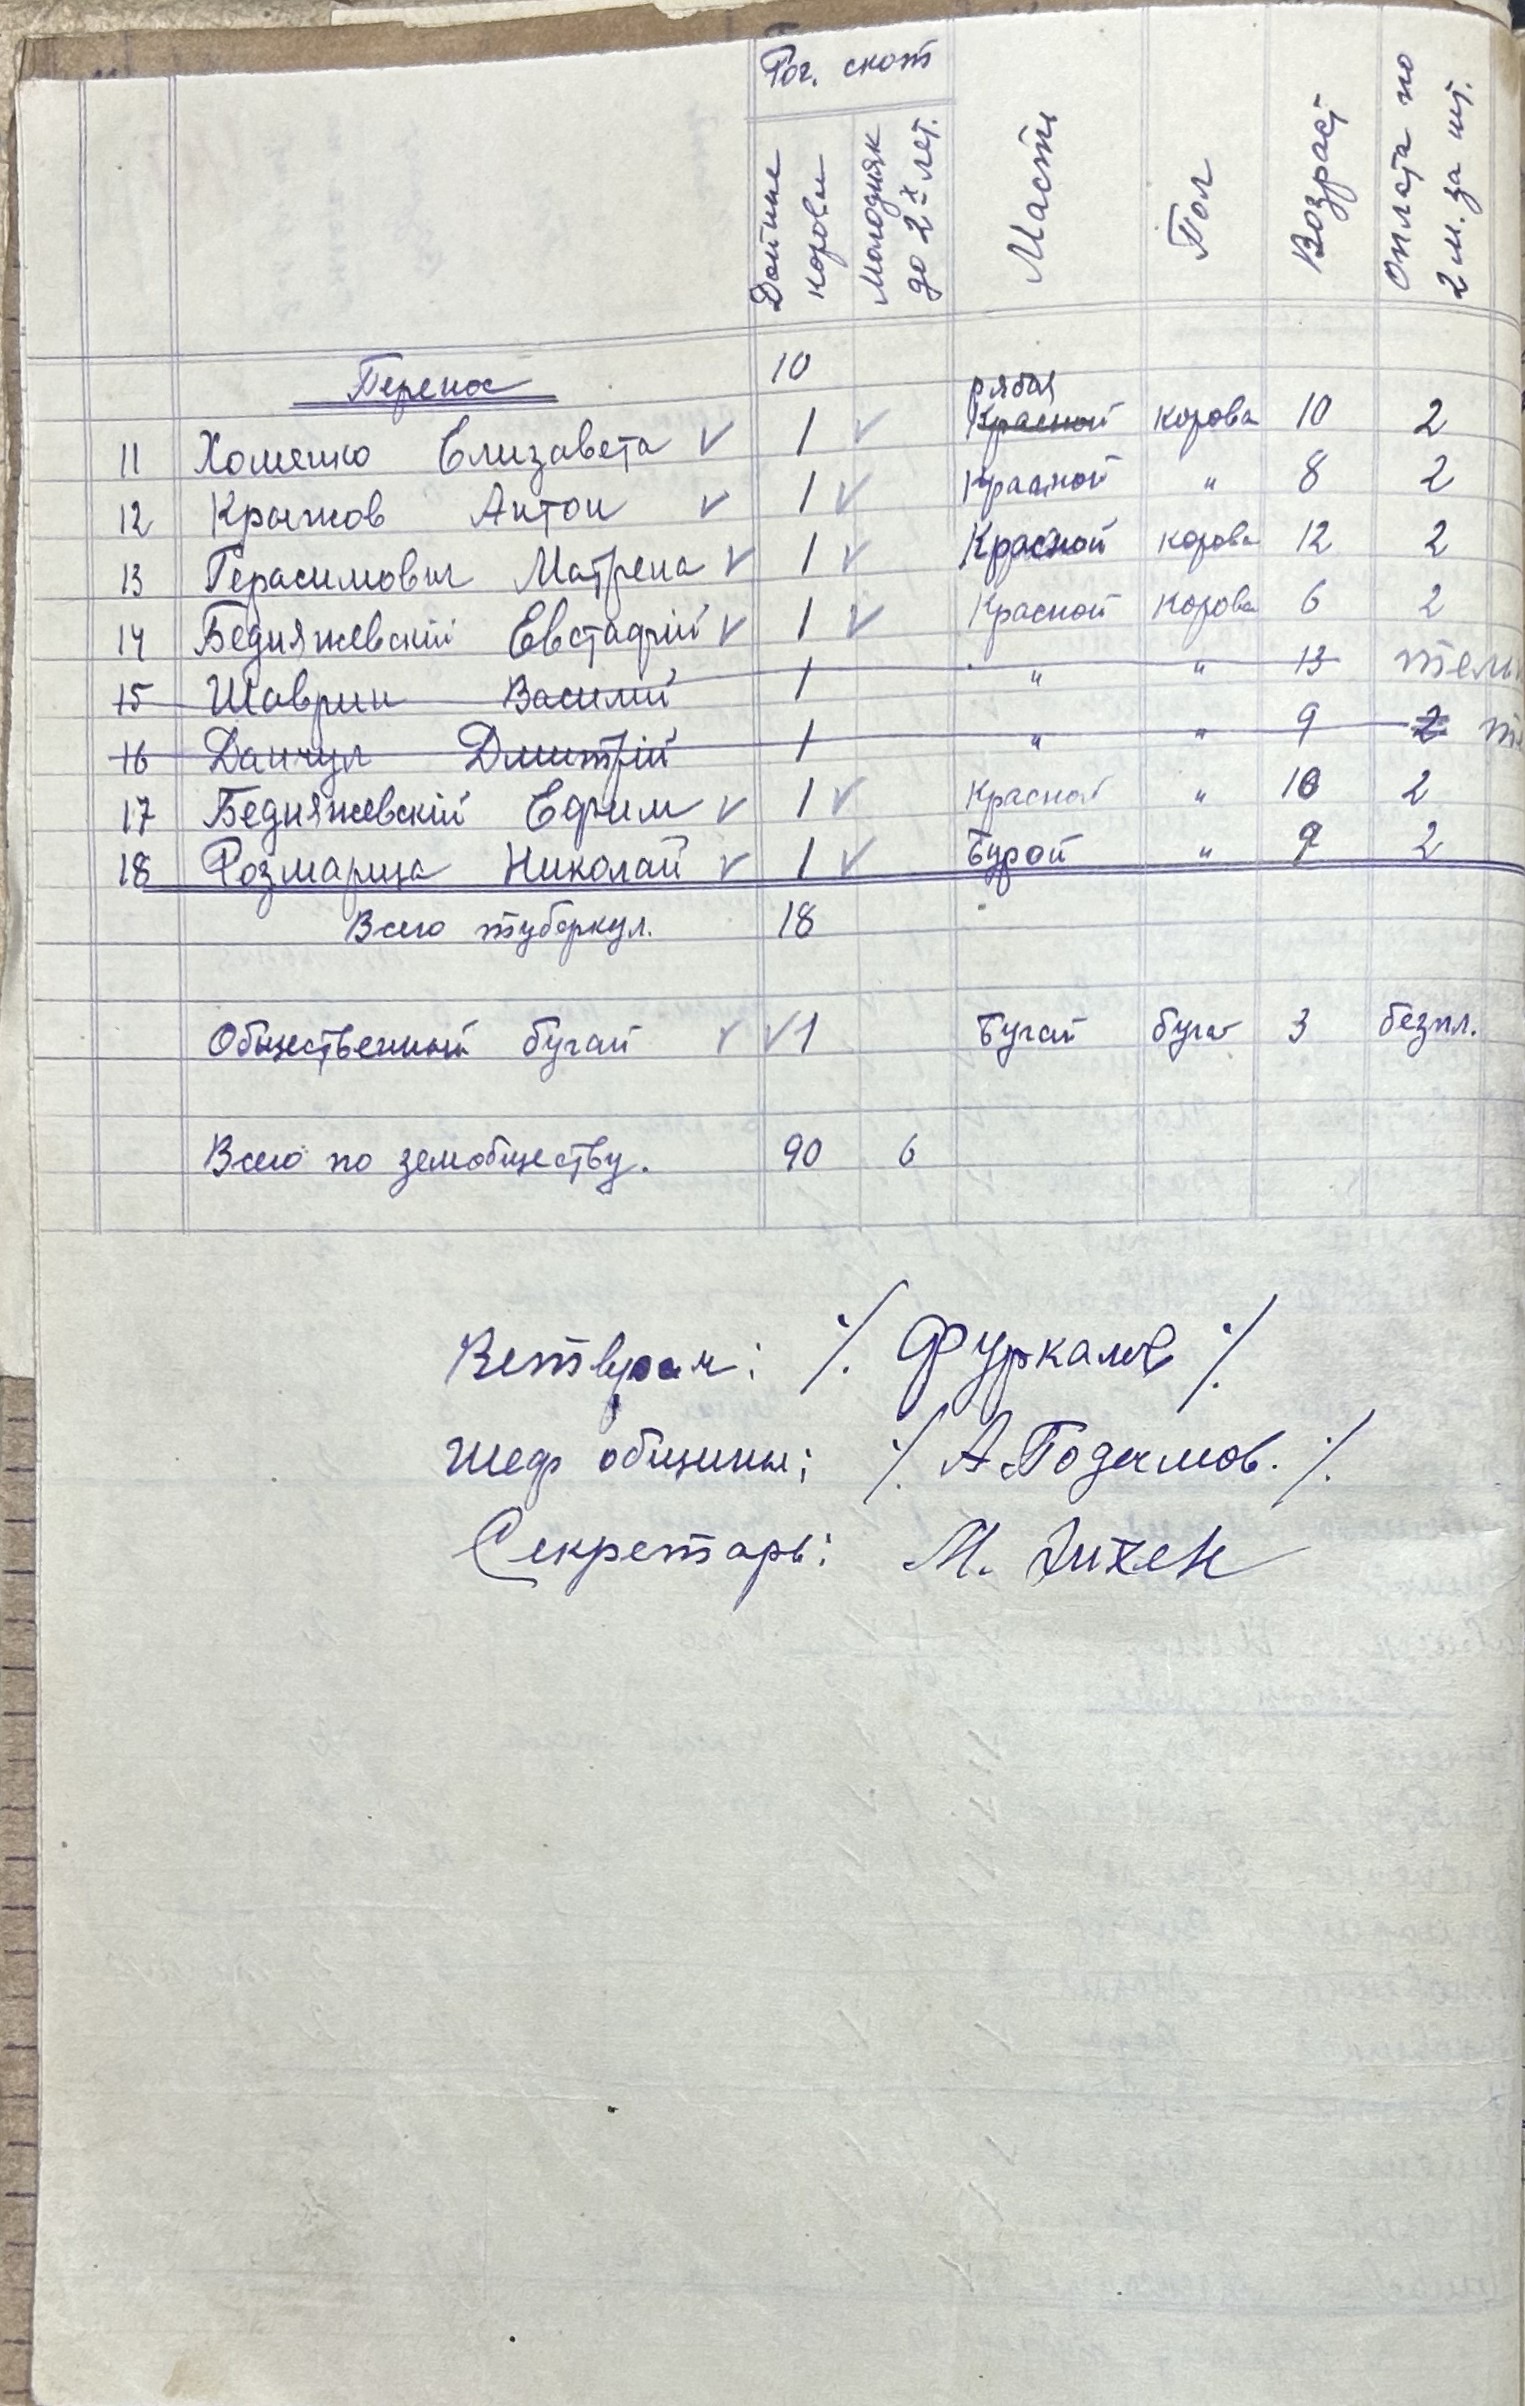 Рог. скот
Дойные коровы
Молодняк до 2х лет.
Масть
Пол
Возраст
Оплата по 2 м. за шт.
Перенос 10
рябая
11 Хоменко Елизавета ✓ 1 ✓ Красной корова 10 2
12 Крычков Антон ✓ 1 ✓ Красной " 8 2
13 Герасимович Матрена ✓ 1 ✓ Красной корова 12 2
14 Бедняжевскій Евстафий ✓ 1 ✓ Красной корова 6 2
15 Шаврин Василий 1 " " 13
16 Данчул Дмитрій 1 " " 9 2
17 Бедняжевскій Ефим ✓ 1 ✓ Красной " 10 2
18 Розмарица Николай ✓ 1 ✓ Бурой " 9 2
Всего туберкул. 18
Общественный бугай ✓ ✓ 1 Бугай буга 3 безпл.
Всего по земобществу. 90 6
Ветврач: /. Фуркалов /.
Шеф общины: /. А. /.
Секретарь: М.